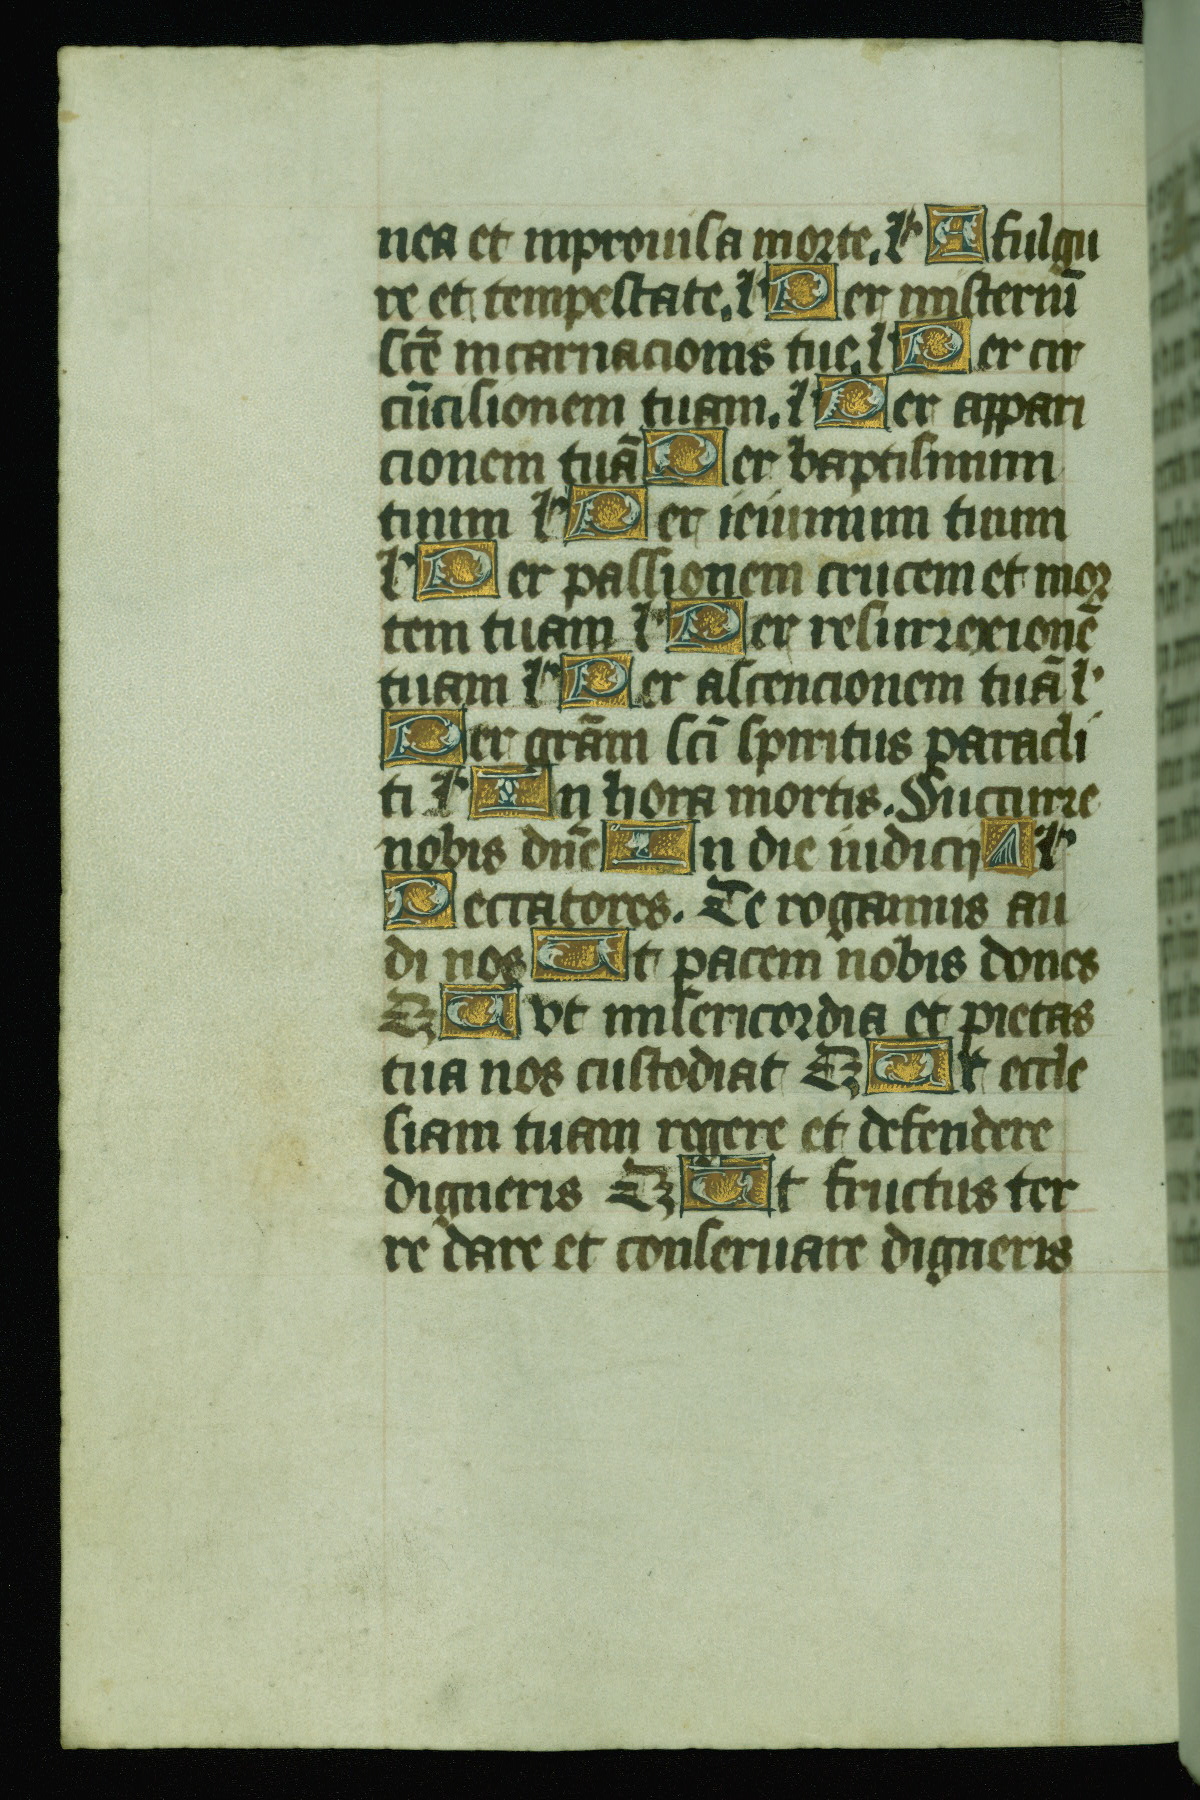 nea et inprouisa morte. lr A fulgu
re et tempestate. lr Per misteriū
scē incarnacionis tue. lr Per cir
cūcisionem tuam. lr Per appari
cionem tuā Per baptismum
tuum lr Per ieiunium tuum
lr Per passionem crucem et mor
tem tuam lr Per resurrexionē
tuam lr Per ascencionem tuā lr
Per grām scī spiritus paracli
ti lr In hora mortis. Succurre
nobis dn̄e In die iudicij lr
Peccatores. Te rogamus au
di nos Ut pacem nobis dones
T Uvt misericordia et pietas
tua nos custodiat T Ut eccle
siam tuam regere et defendere
digneris T Ut fructus ter
re dare et conseruare digneris